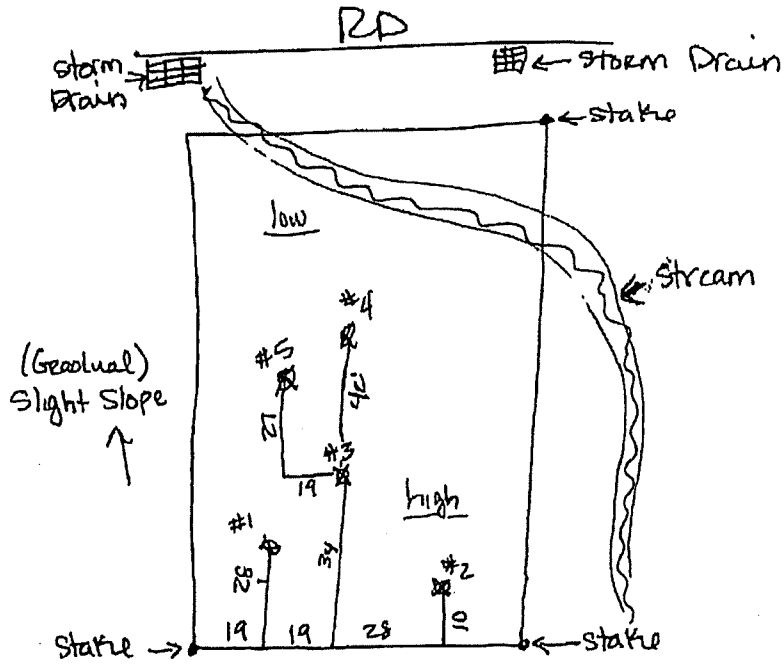 RD
storm
Drain
storm Drain
stake
low
stream
#4
(Gradual)
Slight Slope
#5
27
#3
19
high
#1
34
#2
10
19
19
28
Stake
stake